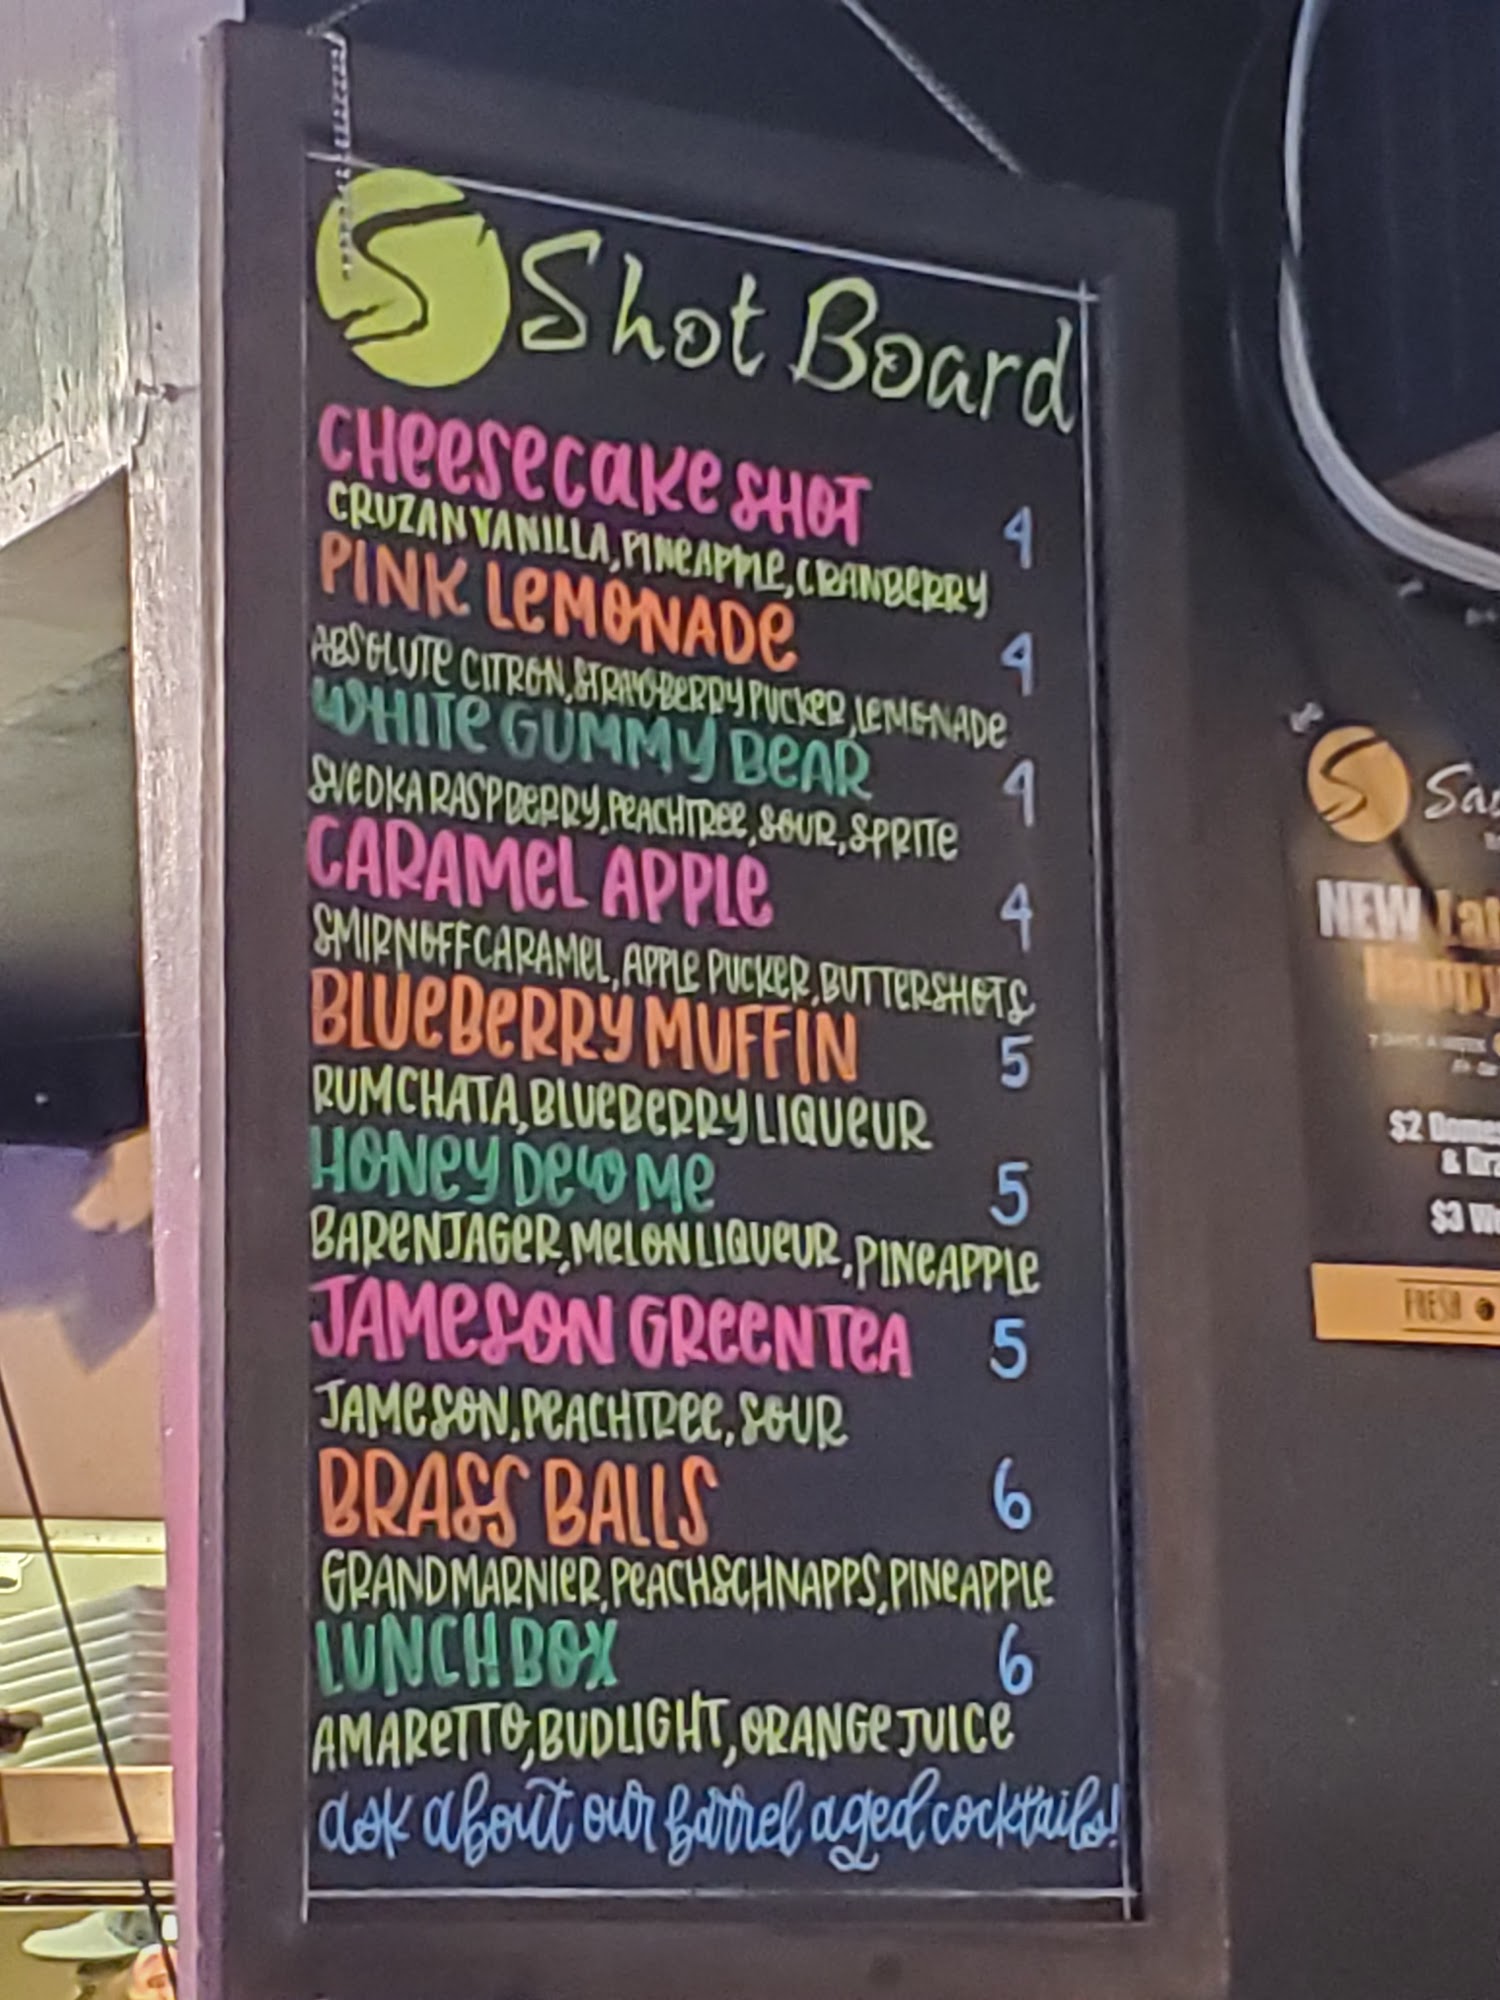 S Shot Board
CHeeseCaKe SHOT 4
CRUZAN VANILLA, PINeAPPLe, CRANBeRRY
PINK LeMONADe 4
ABSOLUTe CITRON, STRAWBeRRY PUCKeR, LeMONADe
WHITe GUMMY BeAR 4
SVeDKA RASPBeRRY, PeACHTRee, SOUR, SPRITe
CARAMeL APPLe 4
SMIRNOFF CARAMeL, APPLe PUCKeR, BUTTeRSHOTS
BLUeBeRRY MUFFIN 5
RUMCHATA, BLUeBeRRY LIQUeUR
HONeY DeW Me 5
BAReNJAGeR, MeLON LIQUeUR, PINeAPPLe
JAMeSON GReeN TeA 5
JAMeSON, PeACHTRee, SOUR
BRASS BALLS 6
GRAND MARNIeR, PeACH SCHNAPPS, PINeAPPLe
LUNCH BOX 6
AMAReTTO, BUDLIGHT, ORANGe JUICe
ask about our barrel aged cocktails!
S
NEW
Happy
7 DAYS A WEEK
$2
&
$3
FRESH